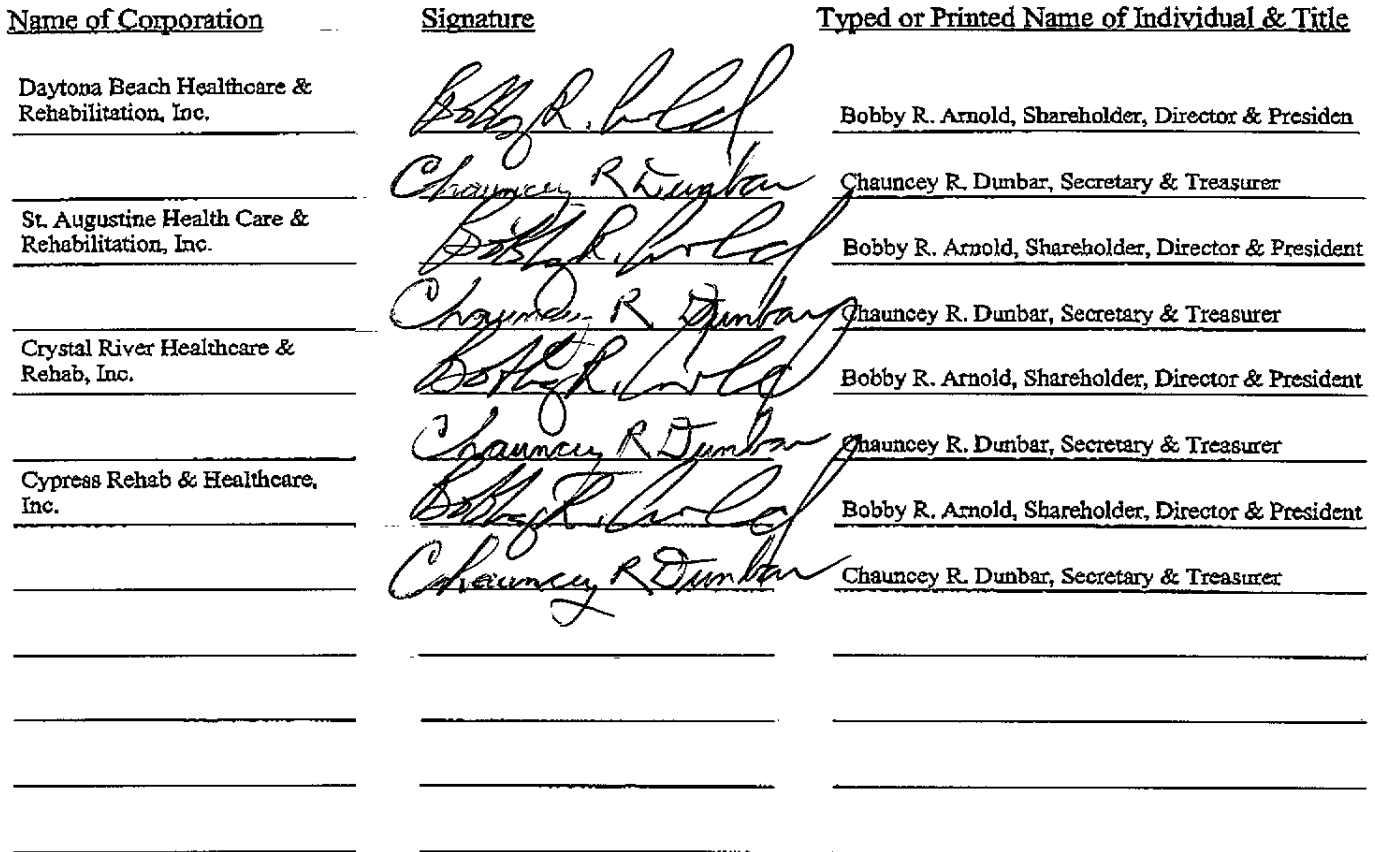 Name of Corporation Signature Typed or Printed Name of Individual & Title
Daytona Beach Healthcare &
Rehabilitation, Inc.
Bobby R. Arnold Bobby R. Arnold, Shareholder, Director & Presiden
Chauncey R Dunbar Chauncey R. Dunbar, Secretary & Treasurer
St. Augustine Health Care &
Rehabilitation, Inc.
Bobby R. Arnold Bobby R. Arnold, Shareholder, Director & President
Chauncey R. Dunbar Chauncey R. Dunbar, Secretary & Treasurer
Crystal River Healthcare &
Rehab, Inc.
Bobby R. Arnold Bobby R. Arnold, Shareholder, Director & President
Chauncey R Dunbar Chauncey R. Dunbar, Secretary & Treasurer
Cypress Rehab & Healthcare,
Inc.
Bobby R. Arnold Bobby R. Arnold, Shareholder, Director & President
Chauncey R Dunbar Chauncey R. Dunbar, Secretary & Treasurer